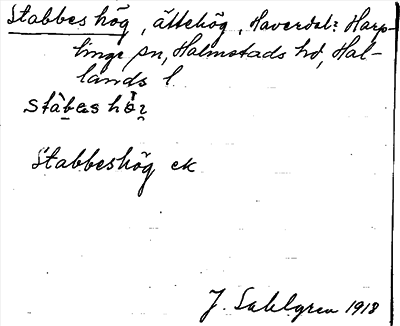 Stabbes hög, ättehög, Haverdal: Harp-
linge sn, Halmstads hd, Hal-
lands l.
Stabbeshög ek
J. Sahlgren 1918